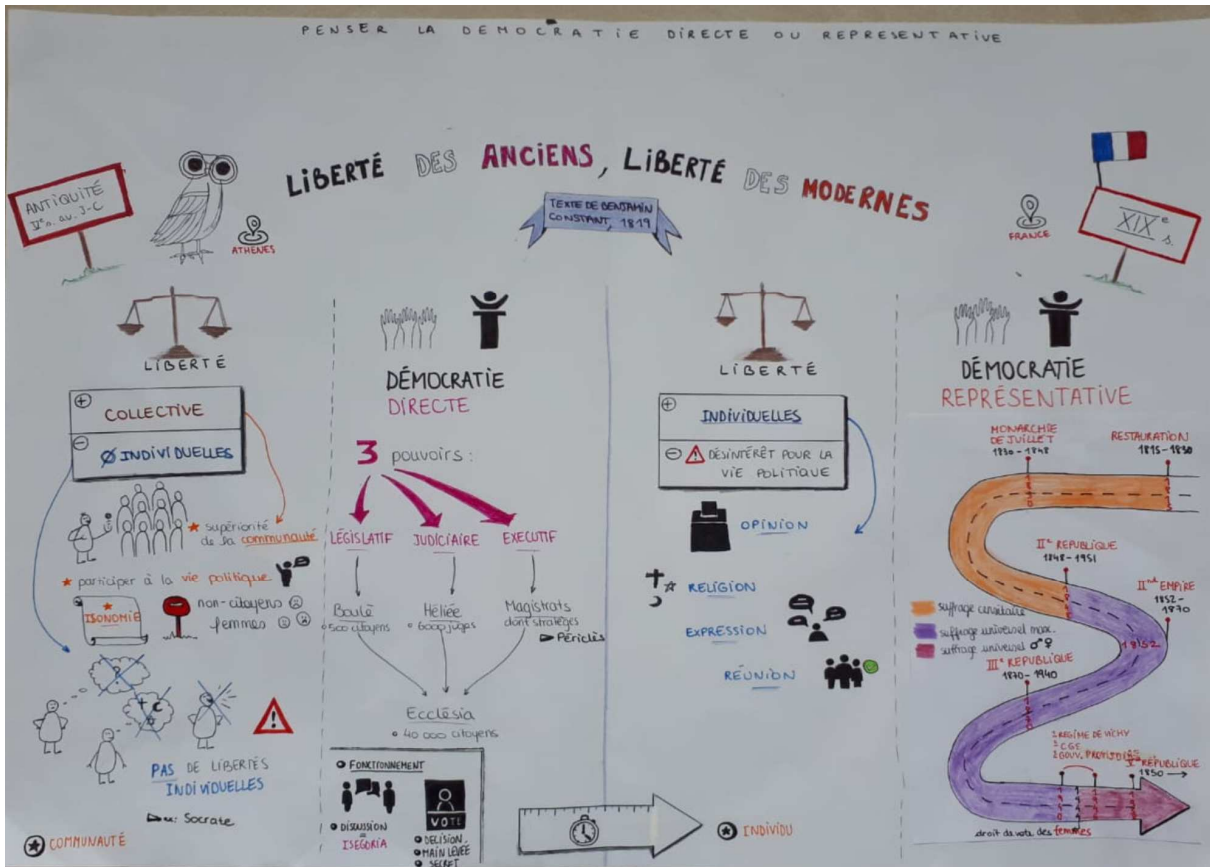 PENSER LA DEMOCRATIE DIRECTE OU REPRESENTATIVE
LIBERTÉ DES ANCIENS, LIBERTÉ DES MODERNES
TEXTE DE BENJAMIN
CONSTANT, 1819
ANTIQUITÉ
av. J-C
ATHÈNES
FRANCE
XIXe
s.
LIBERTÉ
+ COLLECTIVE
- Ø INDIVIDUELLES
supériorité
de la communauté
participer à la vie politique
ISONOMIE
non-citoyens
femmes
PAS DE LIBERTÉS
INDIVIDUELLES
Socrate
COMMUNAUTÉ
DÉMOCRATIE
DIRECTE
3 pouvoirs :
LÉGISLATIF JUDICIAIRE EXECUTIF
Boulè
500 citoyens
Héliée
6000 juges
Magistrats
dont stratèges
Périclès
Ecclésia
40 000 citoyens
FONCTIONNEMENT
DISCUSSION
ISEGORIA
VOTE
MAIN LEVÉE
SECRET
LIBERTÉ
+ INDIVIDUELLES
- DÉSINTÉRÊT POUR LA
VIE POLITIQUE
OPINION
RELIGION
EXPRESSION
RÉUNION
INDIVIDU
DÉMOCRATIE
REPRÉSENTATIVE
MONARCHIE
DE JUILLET
1830-1848
RESTAURATION
1815-1830
IIe REPUBLIQUE
1848-1951
IInd EMPIRE
1852-
1870
suffrage censitaire
suffrage universel masc.
suffrage universel ♂♀
1852
IIIe REPUBLIQUE
1870-1940
REGIME DE VICHY
GOUV. PROVISOIRE
REPUBLIQUE
droit de vote des femmes